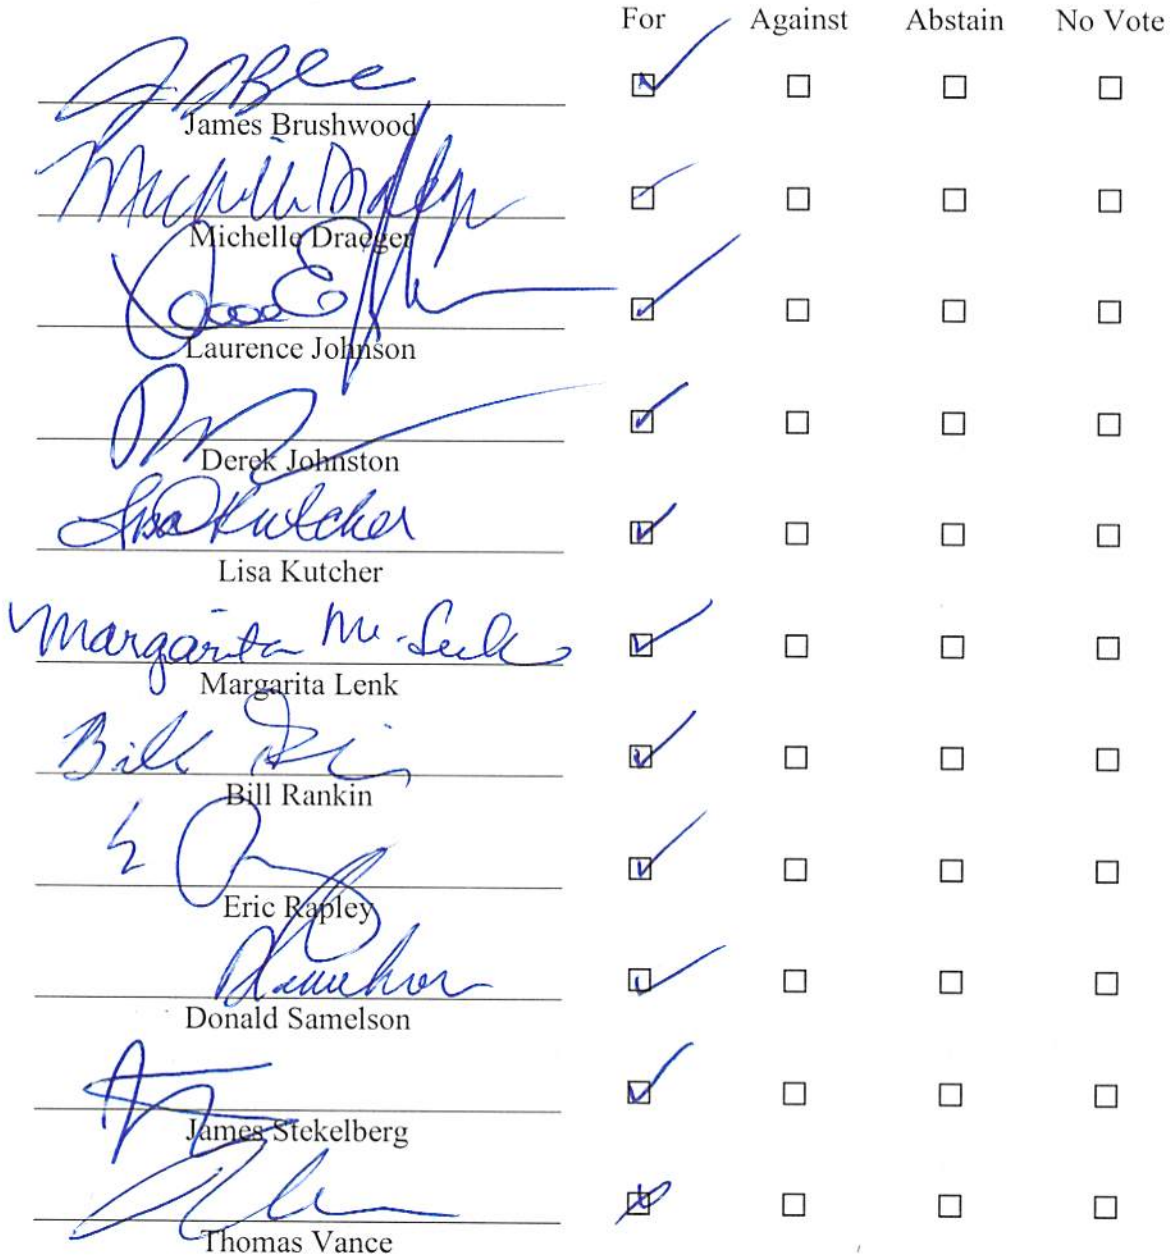 For Against Abstain No Vote
James Brushwood
Michelle Draeger
Laurence Johnson
Derek Johnston
Lisa Kutcher
Lisa Kutcher
Margarita M. Lenk
Margarita Lenk
Bill
Bill Rankin
Eric Rapley
Donald Samelson
James Stekelberg
Thomas Vance